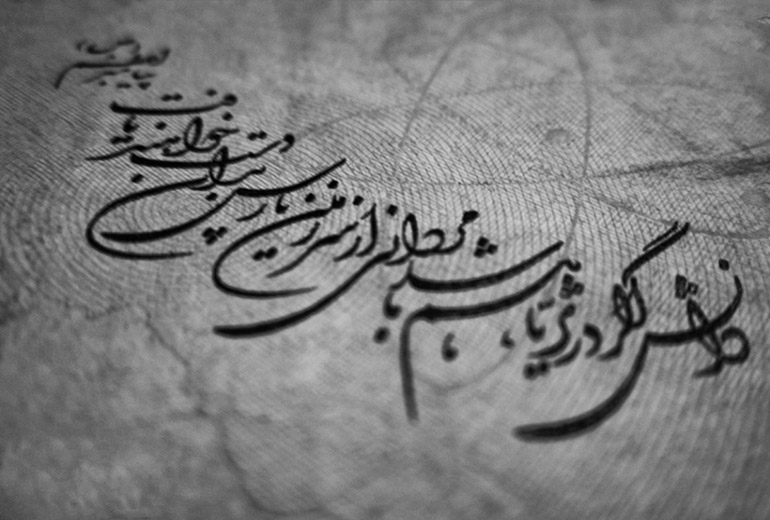 دانش اگر در ثریا هم باشد مردانی از سرزمین پارس بر آن دست خواهند یافت
پیامبر اعظم (ص)